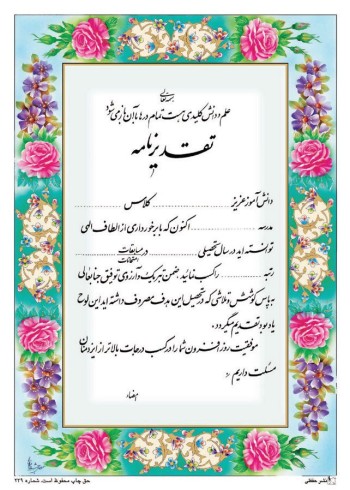 بسمه تعالی
علم و دانش کلیدی هست تمام درها با آن باز می شود
تقدیرنامه
دانش آموز عزیز ........ کلاس ........
مدرسه ........ اکنون که با برخورداری از الطاف الهی
توانسته اید در سال تحصیلی ........ در مسابقات
امتحانات
رتبه ........ را کسب نمائید، ضمن تبریک و آرزوی توفیق جنابعالی
به پاس کوشش و تلاشی که در تحصیل این هدف مصروف داشته اید این لوح
یادبود تقدیم میگردد.
موفقیت روزافزون شما را در کسب درجات بالاتر از ایزد منان
مسئلت داریم
امضاء
نشر حافظی
حق چاپ محفوظ است. شماره ۲۲۹